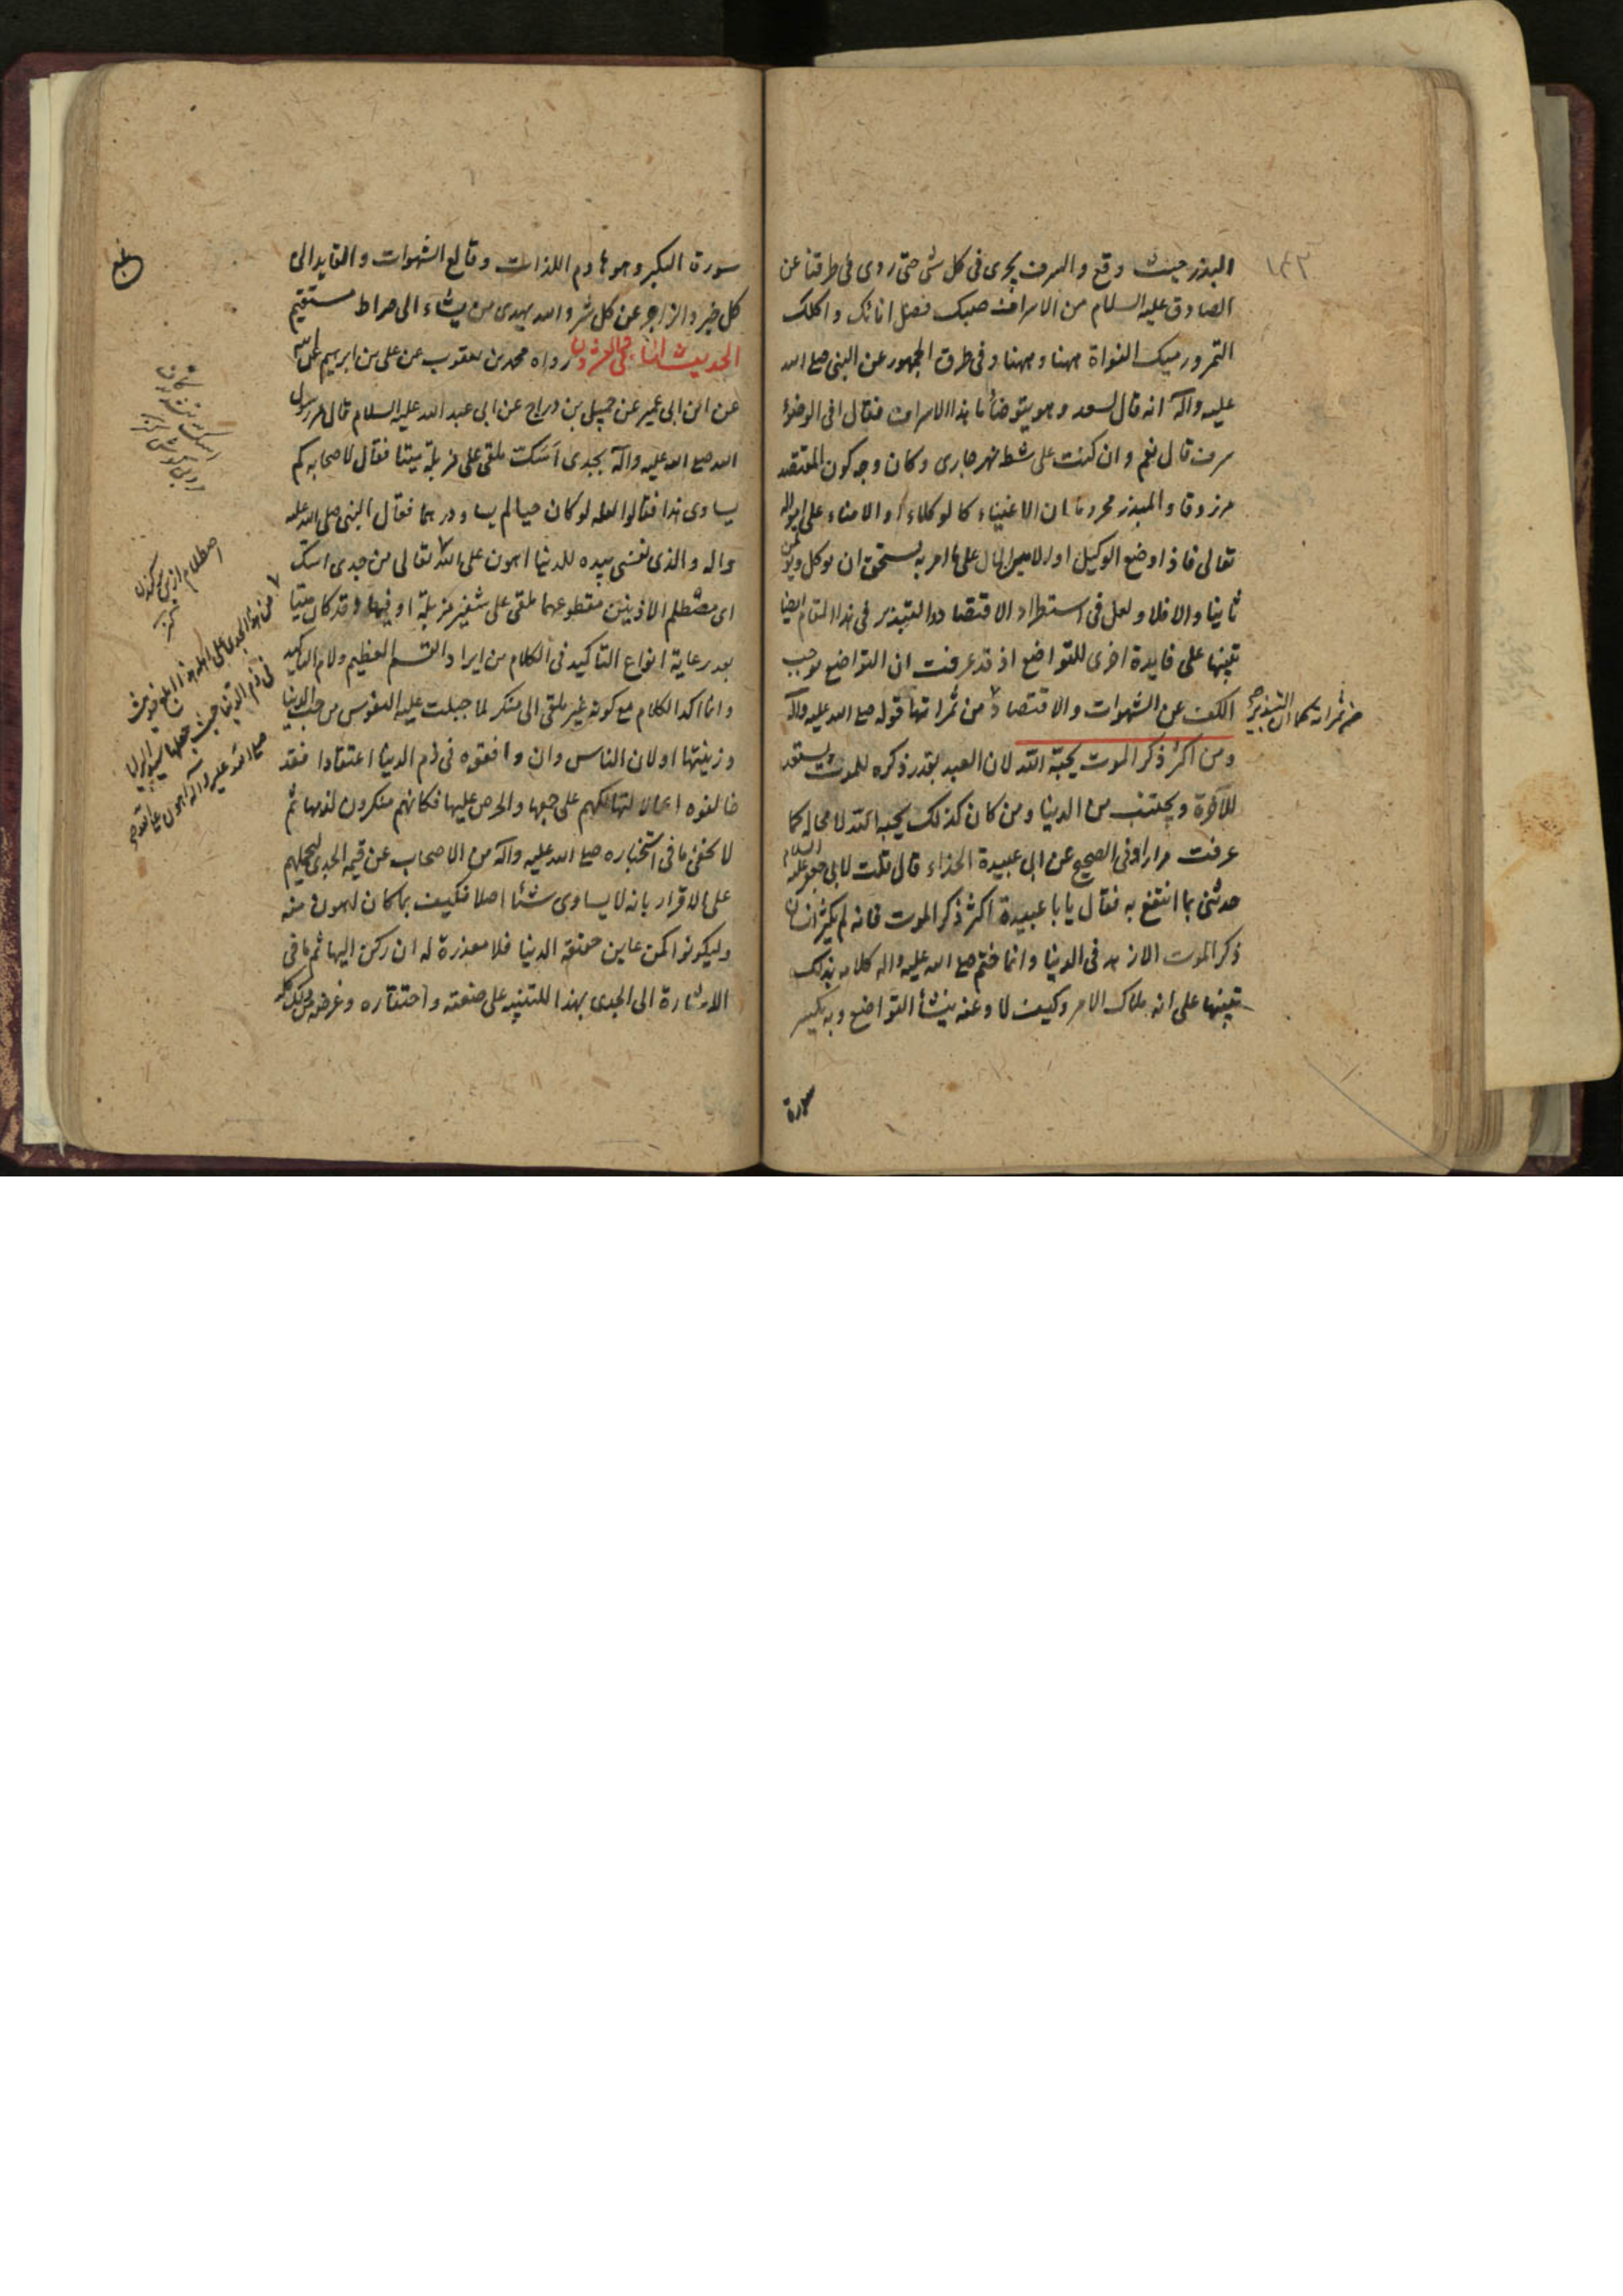 ١٤٢
البذر حيث وقع والسرف يجرى فى كل شى حتى روى فى طرقنا عن
الصادق عليه السلام من الاسراف صبك فضل انائك واكلك
التمر ورميك النواة ههنا وههنا وفى طرق الجمهور عن النبى صلع الله
عليه وآله انه قال لسعد وهو يتوضأ ما هذا الاسراف فقال افى الوضوء
سرف قال نعم وان كنت على شط نهر جارى وكان وجه كون المقتصد
مرزوقا والمبذر محروما ان الاغنياء كالوكلاء والامناء على اموال الله
تعالى فاذا وضع الوكيل او الامين المال على ما امر به يستحق ان يوكل ويؤتمن
ثانيا والا فلا ولعل فى استطراد الاقتصاد والتبذير فى هذا المقام ايضا
تنبيها على فايدة اخرى للتواضع اذ قد عرفت ان التواضع يوجب
الكف عن الشهوات والاقتصاد من ثمراتها قوله صلع الله عليه وآله
من ثمراته كما ان التبذير
ومن اكثر ذكر الموت يحبّه الله لان العبد بقدر ذكره للموت يستعد
للآخرة ويجتنب من الدنيا ومن كان كذلك يحبه الله لا محاله كما
عرفت مرارا وفى الصحيح عن ابى عبيدة الحذاء قال قلت لابى جعفر عليه السلام
حدثنى بما انتفع به فقال يا با عبيدة اكثر ذكر الموت فانه لم يكثر انسان
ذكر الموت الا زهد فى الدنيا وانما ختم صلع الله عليه واله كلامه بذلك
تنبيها على انه ملاك الامر وكيف لا وعنه ينشأ التواضع وبه يكسر
سورة
سورة الكبر وهو هادم اللذات وقالع الشهوات والقايد الى
كل خير والزاجر عن كل شر والله يهدى من يشاء الى صراط مستقيم
الحديث الثانى والعشرون رواه محمد بن يعقوب عن على بن ابرهيم عن ابيه
عن ابن ابى عمير عن جميل بن دراج عن ابى عبد الله عليه السلام قال مر رسول
الله صلع الله عليه وآله بجدى اسك ملقى على مزبلة ميتا فقال لاصحابه كم
يساوى هذا فقالوا لعله لو كان حيا لم يساو درهما فقال النبى صلى الله عليه
واله والذى نفسى بيده للدنيا اهون على الله تعالى من جدى اسك
اى مصطلم الاذنين مقطوعهما ملقى على شفير مزبلة او فيها وقد كان ميتا
بعد رعاية انواع التاكيد فى الكلام من ايراد القسم العظيم ولام التاكيد
وانما اكد الكلام مع كونه غير ملقى الى منكر لما جبلت عليه النفوس من حب الدنيا
وزينتها او لان الناس وان وافقوه فى ذم الدنيا اعتقادا فقد
خالفوه اعمالا لتهالكهم على حبها والحرص عليها فكانهم منكرون لذمها ثم
لا يخفى ما فى استخباره صلع الله عليه وآله من الاصحاب عن قيمة الجدى ليحملهم
على الاقرار بانه لا يساوى شئا اصلا فكيف بما كان اهون منه
وليكونوا كمن عاين حقيقة الدنيا فلا معذرة له ان ركن اليها ثم ما فى
الاشارة الى الجدى بهذا للتنبيه على ضعته واحتقاره وغرضه من ذلك كله
اصطلام از بن بر كندن
كنز
من هذا الجدى على اهله
فى ذم الدنيا حيث جعلها
صلع الله عليه واله اهون